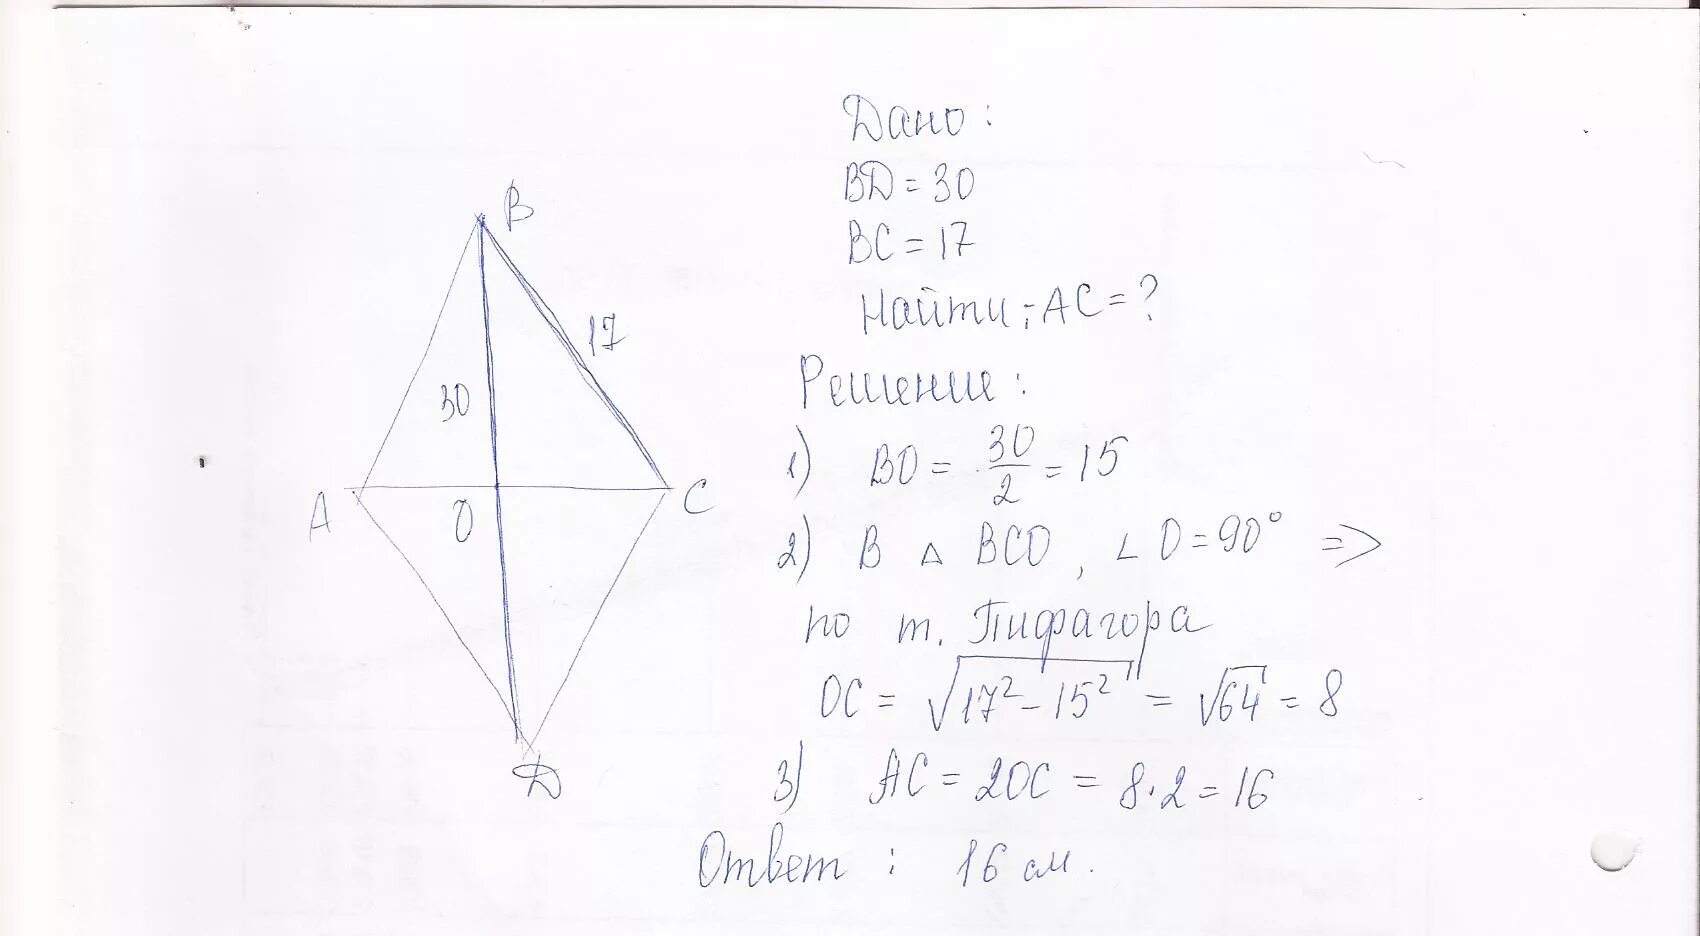 B
17
30
A
O
C
D
Дано:
BD = 30
BC = 17
Найти: AC = ?
Решение:
1) BO = 30/2 = 15
2) В △ BCO, ∠O = 90° =>
по т. Пифагора
OC = √17² - 15² = √64 = 8
3) AC = 2OC = 8·2 = 16
Ответ: 16 см.